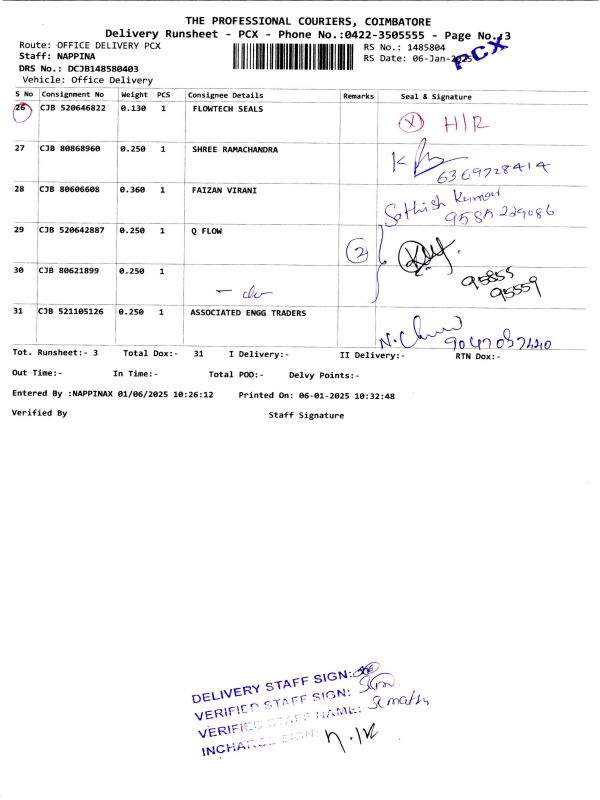 THE PROFESSIONAL COURIERS, COIMBATORE
Delivery Runsheet - PCX - Phone No.:0422-3505555 - Page No.:3
PCX
Route: OFFICE DELIVERY PCX
RS No.: 1485804
Staff: NAPPINA
RS Date: 06-Jan-2025
DRS No.: DCJB148580403
Vehicle: Office Delivery
S No Consignment No Weight PCS Consignee Details Remarks Seal & Signature
26 CJB 520646822 0.130 1 FLOWTECH SEALS
X H/R
27 CJB 80868960 0.250 1 SHREE RAMACHANDRA
6369728414
28 CJB 80606608 0.360 1 FAIZAN VIRANI
Sathish Kumar
9585 229086
29 CJB 520642887 0.250 1 Q FLOW
2
30 CJB 80621899 0.250 1
95855
95559
31 CJB 521105126 0.250 1 ASSOCIATED ENGG TRADERS
Tot. Runsheet:- 3 Total Dox:- 31 I Delivery:- II Delivery:- RTN Dox:-
Out Time:- In Time:- Total POD:- Delvy Points:-
Entered By :NAPPINAX 01/06/2025 10:26:12 Printed On: 06-01-2025 10:32:48
Verified By Staff Signature
DELIVERY STAFF SIGN:
VERIFIED STAFF SIGN:
VERIFIED STAFF NAME:
INCHARGE SIGN: